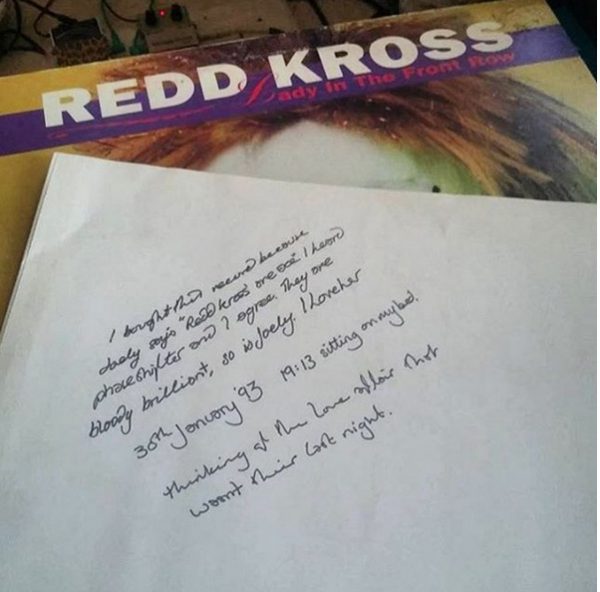 REDD KROSS
Lady In The Front Row
I bought this record because
Joely says "Redd Kross are ace" I heard
phaseshifter and I agree. They are
bloody brilliant, so is Joely. I love her
30th January '93 19:13 sitting on my bed.
thinking of the love affair that
wasnt last night.